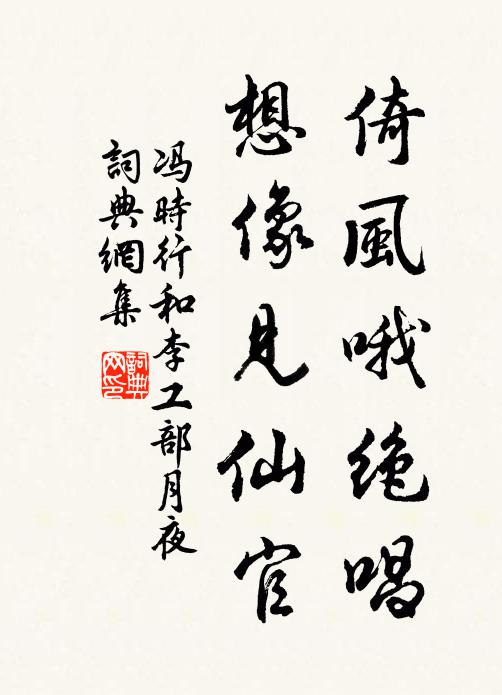 倚風哦絶唱
想像見仙官
冯時行和李工部月夜
詞典網集
詞典
网印